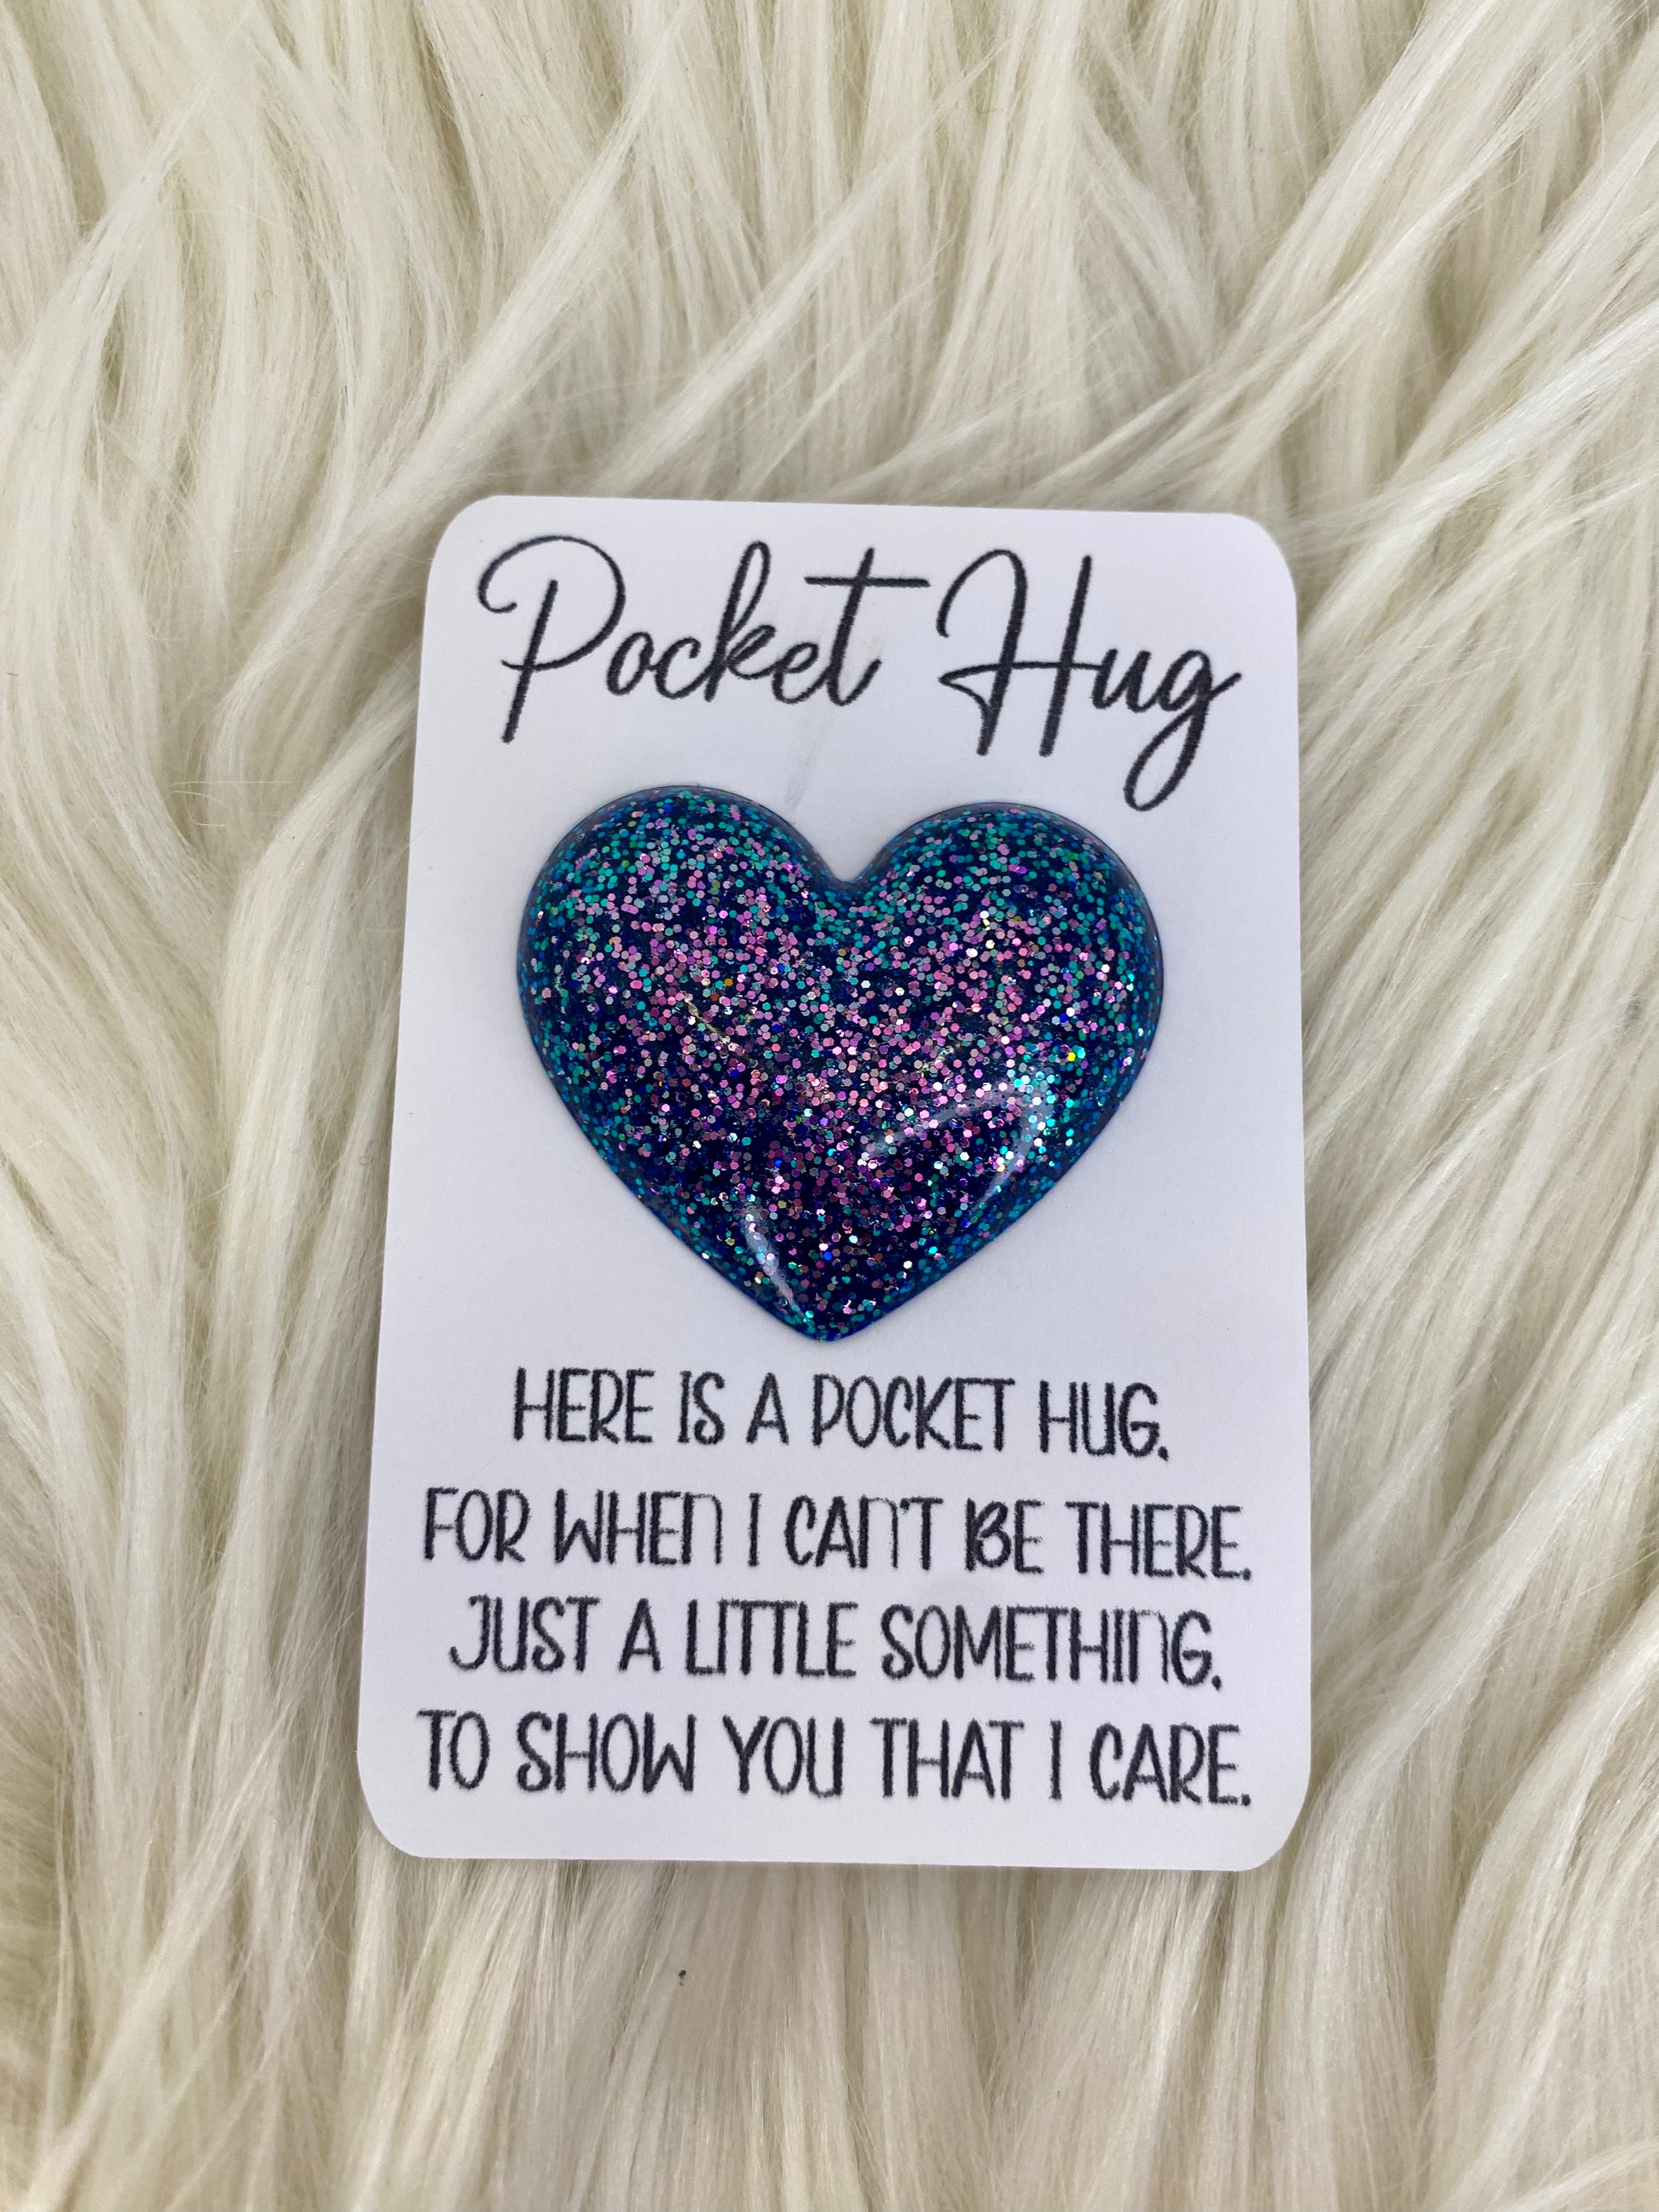 Pocket Hug
HERE IS A POCKET HUG.
FOR WHEN I CAN'T BE THERE.
JUST A LITTLE SOMETHING.
TO SHOW YOU THAT I CARE.